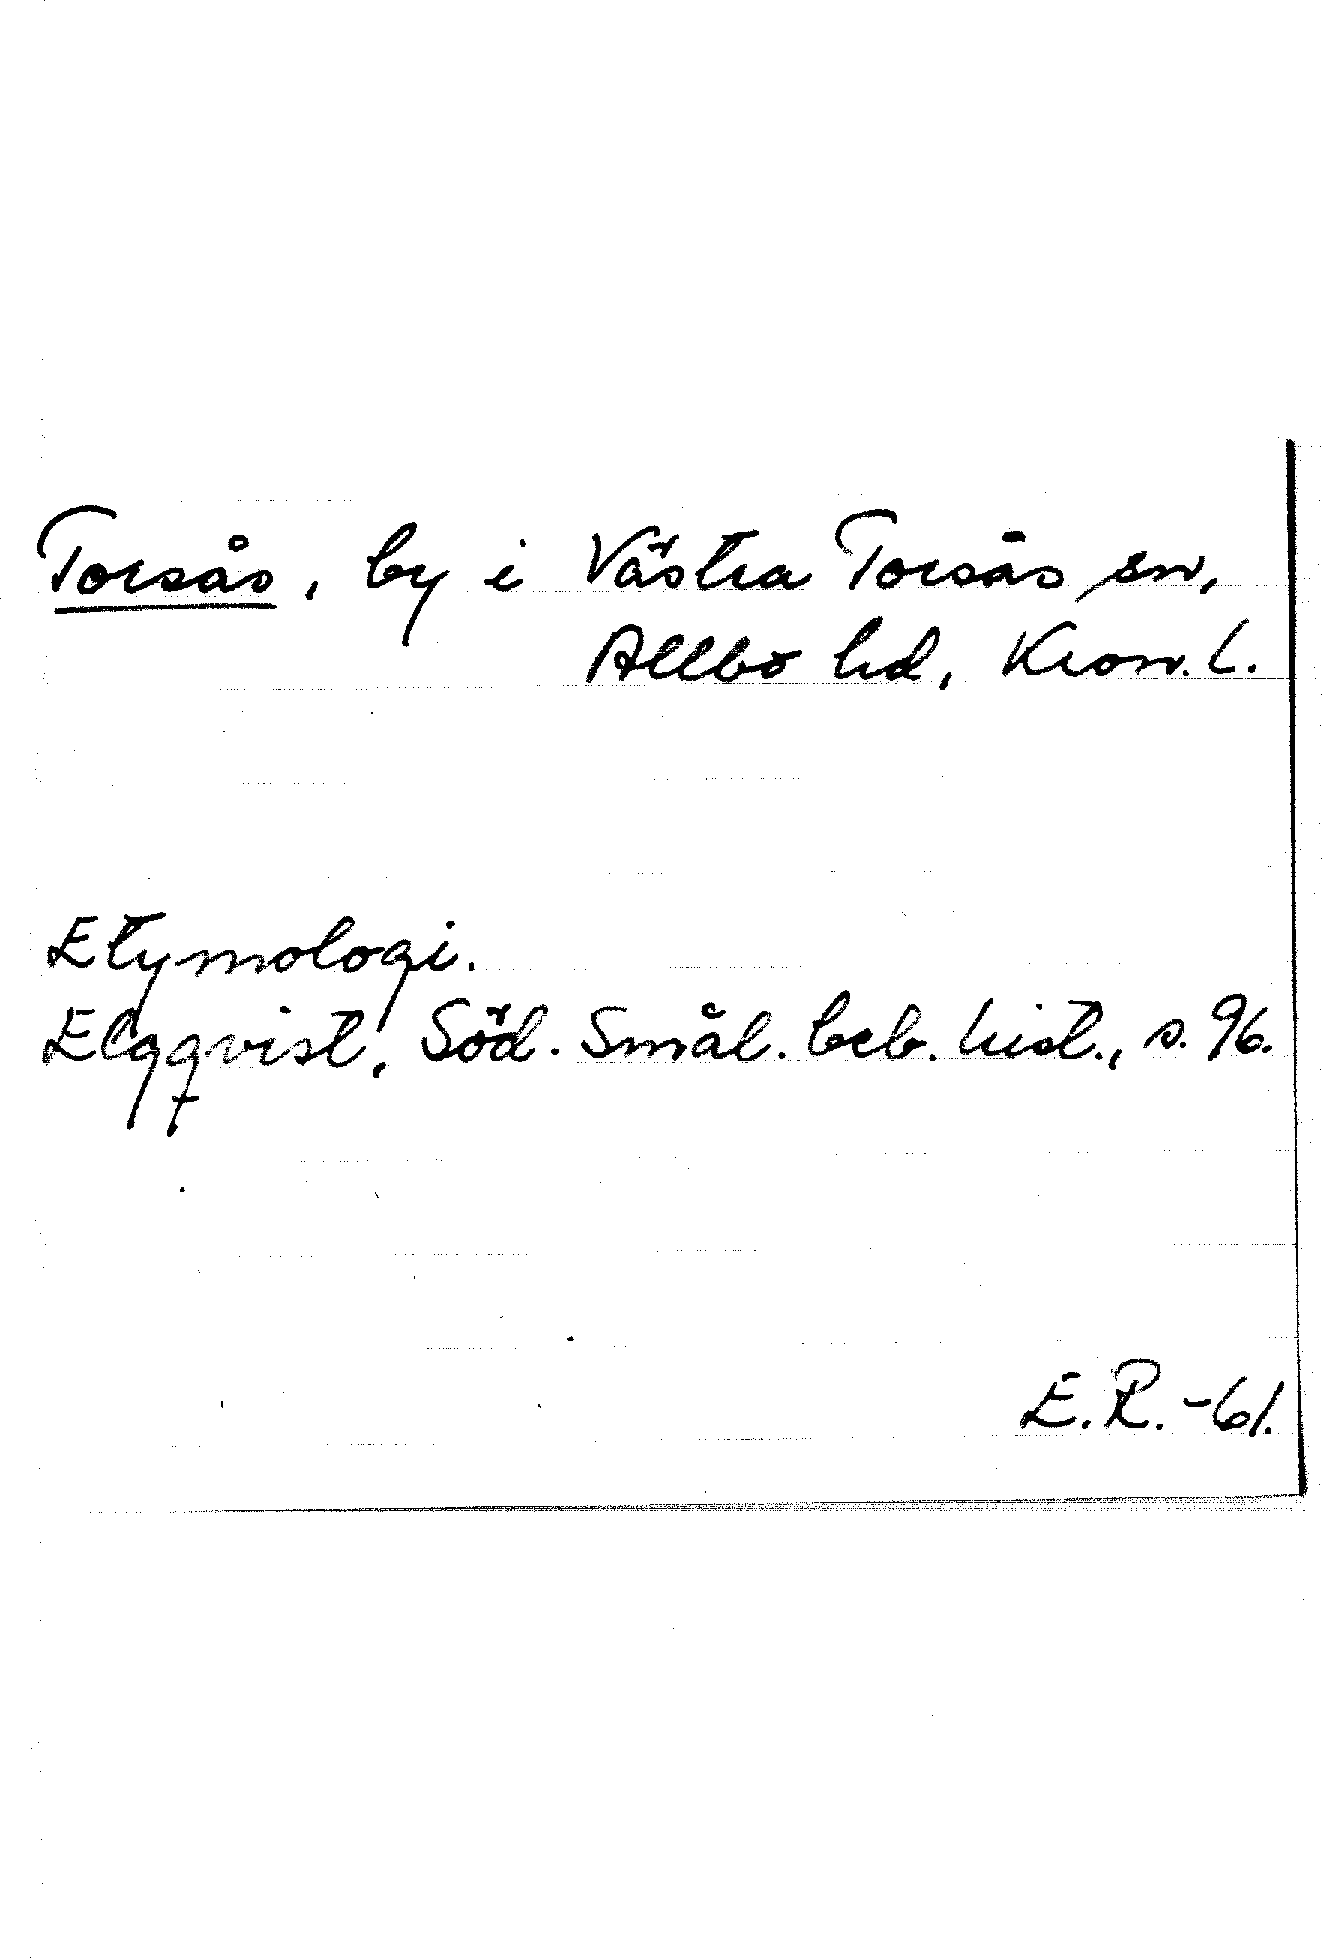 Torsås, by i Västra Torsås sn,
Allbo hd, Kron. l.
Etymologi.
Elgqvist, Söd. Smål. beb. hist., s. 96.
E. R. -61.